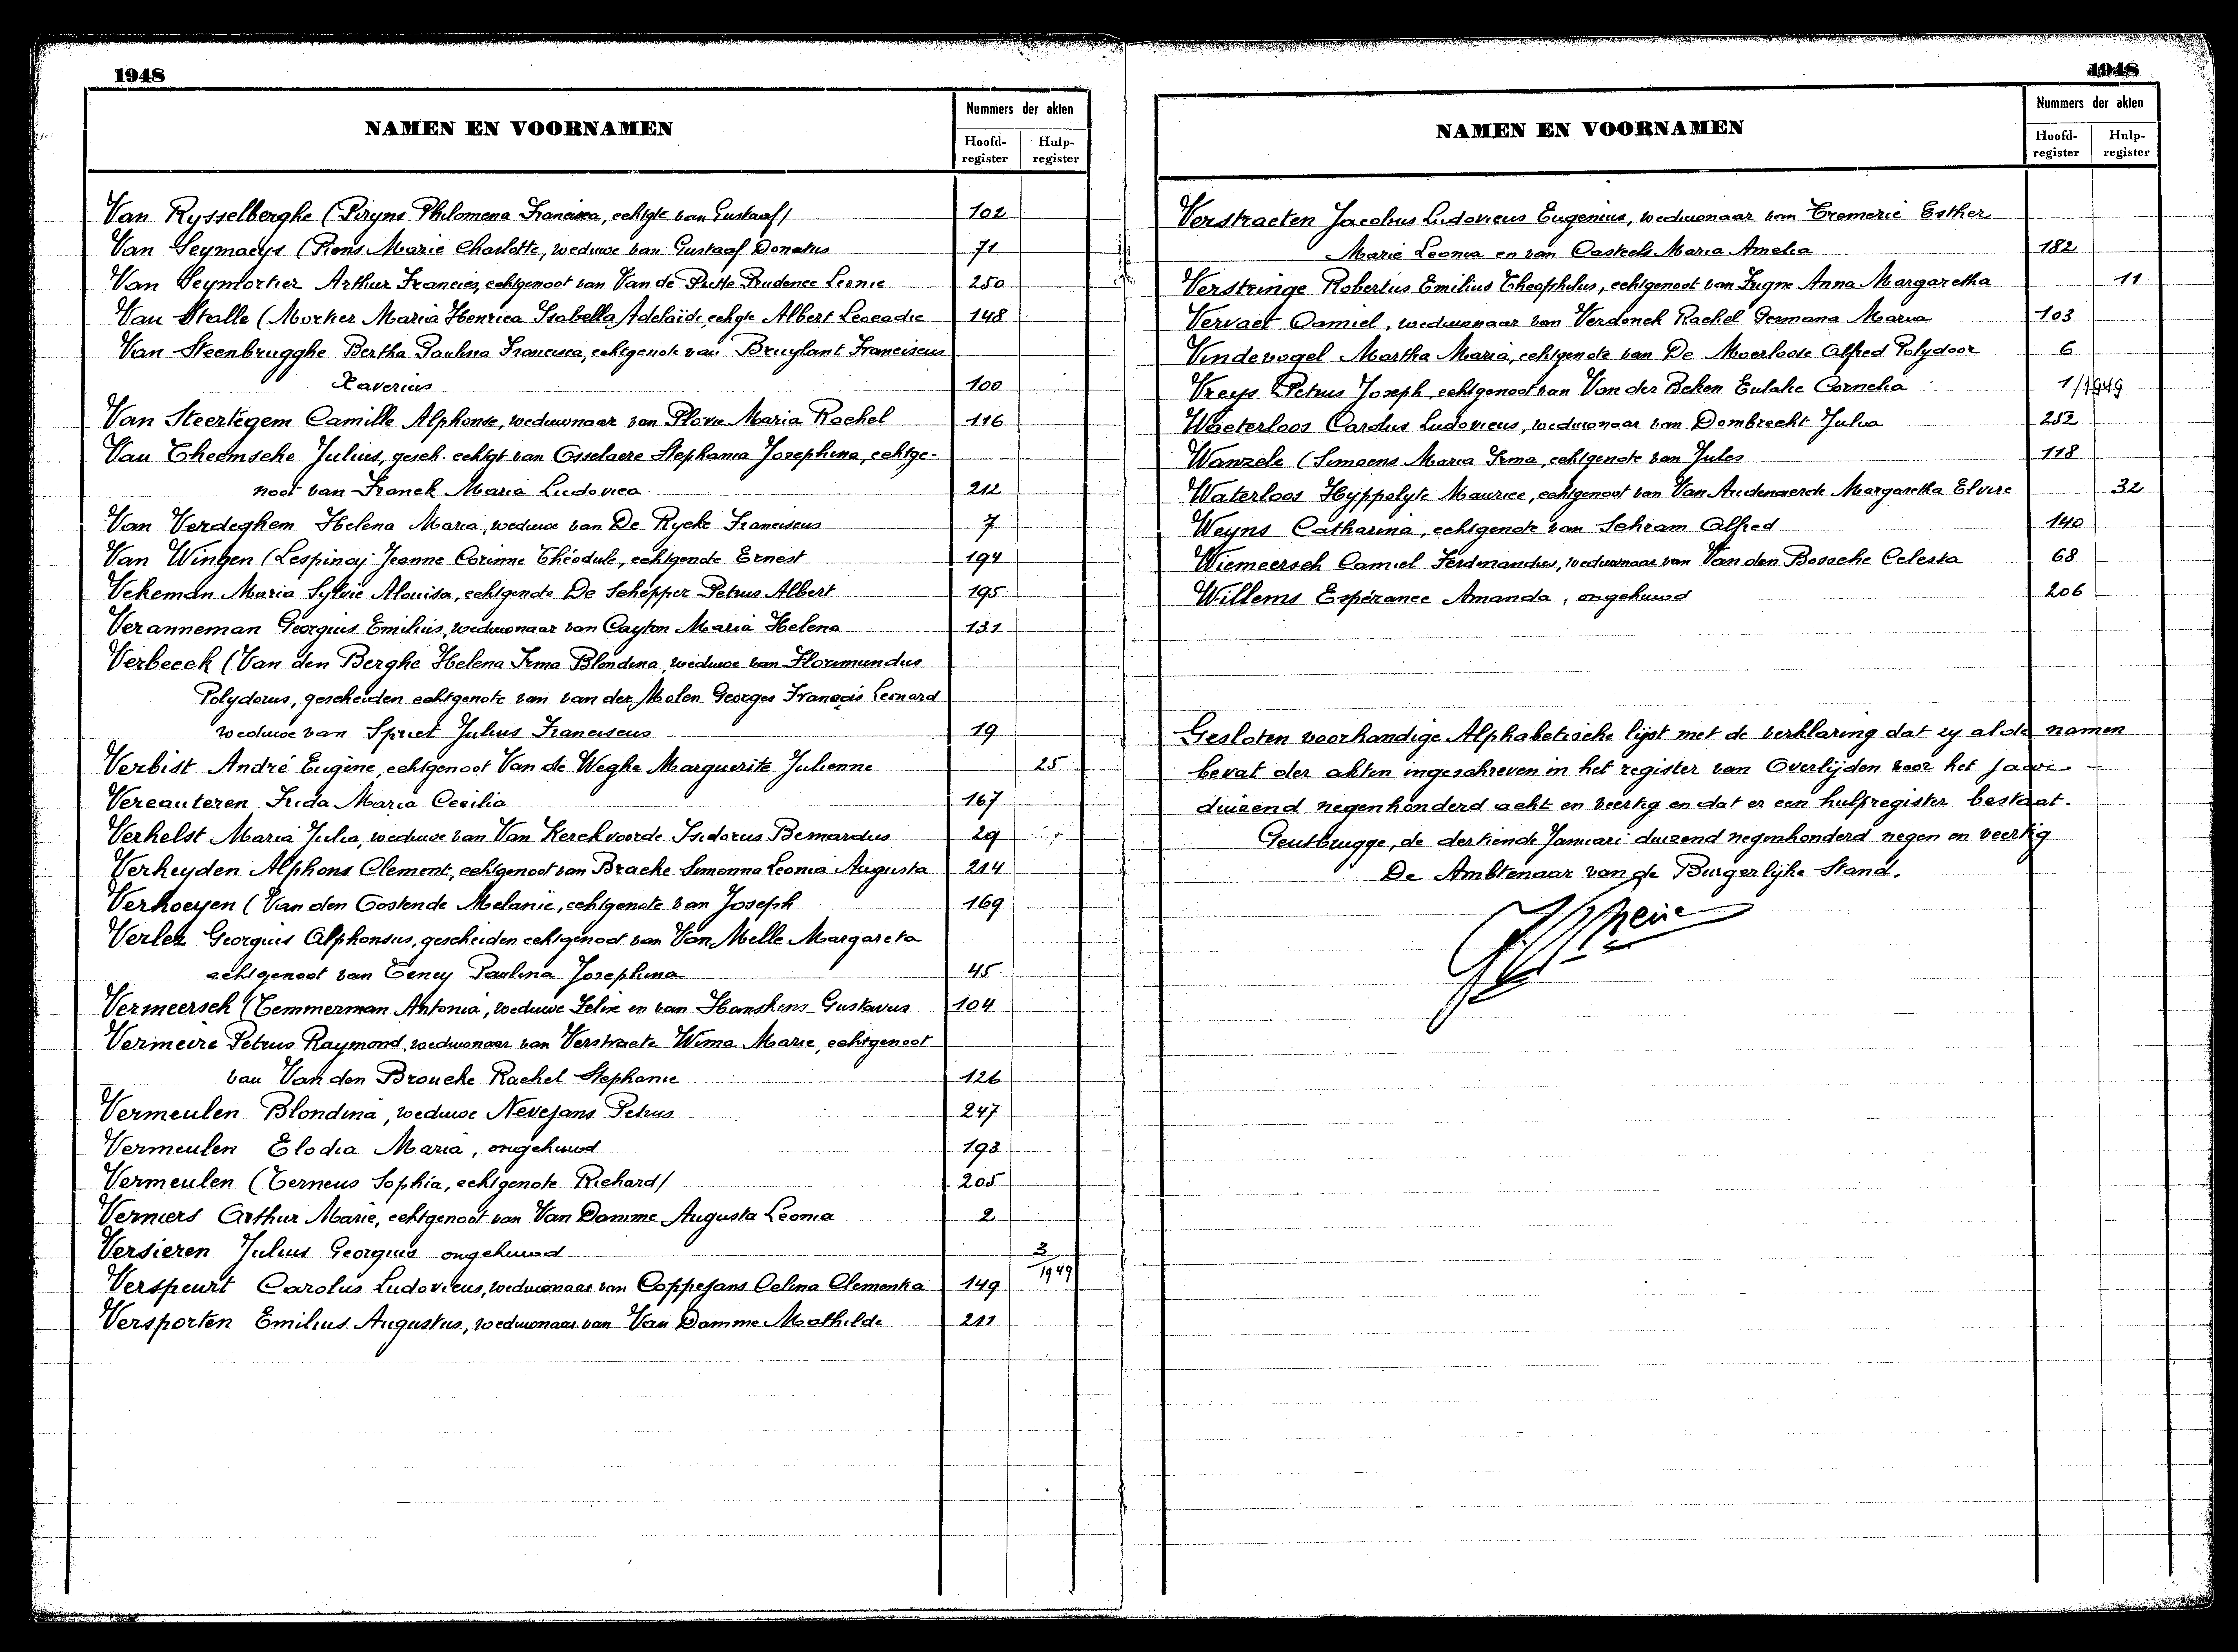 1948
NAMEN EN VOORNAMEN
Nummers der akten
Hoofd-register Hulp-register
Van Rysselberghe (Piryns Philomena Francisca, echtgte van Gustaaf) 102
Van Seymaeys (Piens Marie Charlotte, weduwe van Gustaaf Donatus 71
Van Seymortier Arthur Francies, echtgenoot van Van de Putte Prudence Leonie 250
Van Stalle (Morker Maria Henrica Isabella Adelaide, echgte Albert Leocadie 148
Van Steenbrugghe Bertha Paulina Francisca, echtgenote van Bruylant Franciscus
Xaverius 100
Van Steertegem Camille Alphonse, weduwnaar van Plovie Maria Rachel 116
Van Theemsche Julius, gesch. echtgt van Osselaere Stephania Josephina, echtge-
noot van Franck Maria Ludovica 212
Van Verdeghem Helena Maria, weduwe van De Rycke Franciscus 7
Van Wingen (Lespinoj Jeanne Corinne Théodule, echtgenote Ernest 194
Vekeman Maria Sylvie Alouisa, echtgenote De Schepper Petrus Albert 195
Veranneman Georgius Emilius, weduwnaar van Cayton Maria Helena 131
Verbeeck (Van den Berghe Helena Irma Blondina, weduwe van Florimundus
Polydorus, gescheiden echtgenote van van der Molen Georges François Leonard
weduwe van Spriet Julius Franciscus 19
Verbist André Eugène, echtgenoot Van de Weghe Marguerite Julienne 25
Vercauteren Frida Maria Cecilia 167
Verhelst Maria Julia, weduwe van Van Kerckvoorde Isidorus Bernardus 29
Verheyden Alphons Clement, echtgenoot van Bracke Simonna Leonia Augusta 214
Verhoeyen (Van den Oostende Melanie, echtgenote van Joseph 169
Verlez Georgius Alphonsus, gescheiden echtgenoot van Van Melle Margareta
echtgenoot van Teney Paulina Josephina 45
Vermeersch (Temmerman Antonia, weduwe Felix en van Hanskens Gustavus 104
Vermeire Petrus Raymond, weduwnaar van Verstraete Wima Marie, echtgenoot
van Van den Broucke Rachel Stephanie 126
Vermeulen Blondina, weduwe Nevejans Petrus 247
Vermeulen Elodia Maria, ongehuwd 193
Vermeulen (Terneus Sophia, echtgenote Richard) 205
Verniers Arthur Marie, echtgenoot van Van Damme Augusta Leonia 2
Versieren Julius Georgius ongehuwd 3/1949
Verspeurt Carolus Ludovicus, weduwnaar van Coppejans Celina Clementia 149
Versporten Emilius Augustus, weduwnaar van Van Damme Mathilde 211
1948
NAMEN EN VOORNAMEN
Nummers der akten
Hoofd-register Hulp-register
Verstraeten Jacobus Ludovicus Eugenius, weduwnaar van Cremerie Esther
Marie Leonia en van Casteels Maria Amelia 182
Verstringe Robertus Emilius Theophilus, echtgenoot van Anna Margaretha 11
Vervaet Camiel, weduwnaar van Verdonck Rachel Germana Maria 103
Vindevogel Martha Maria, echtgenote van De Moerloose Alfred Polydoor 6
Vreys Petrus Joseph, echtgenoot van Van der Beken Eulalie Cornelia 1/1949
Waeterloos Carolus Ludovicus, weduwnaar van Dombrecht Julia 252
Wanzele (Simoens Maria Irma, echtgenote van Jules 118
Waterloos Hyppolyte Maurice, echtgenoot van Van Audenaerde Margaretha Elvire 32
Weyns Catharina, echtgenote van Schram Alfred 140
Wiemeersch Camiel Ferdinandus, weduwnaar van Van den Bossche Celesta 68
Willems Espérance Amanda, ongehuwd 206
Gesloten voorhandige Alphabetische lijst met de verklaring dat zy al de namen
bevat der akten ingeschreven in het register van Overlijden voor het jaar
duizend negenhonderd acht en veertig en dat er een hulpregister bestaat.
Gentbrugge, de dertiende Januari duizend negenhonderd negen en veertig
De Ambtenaar van de Burgerlijke Stand,